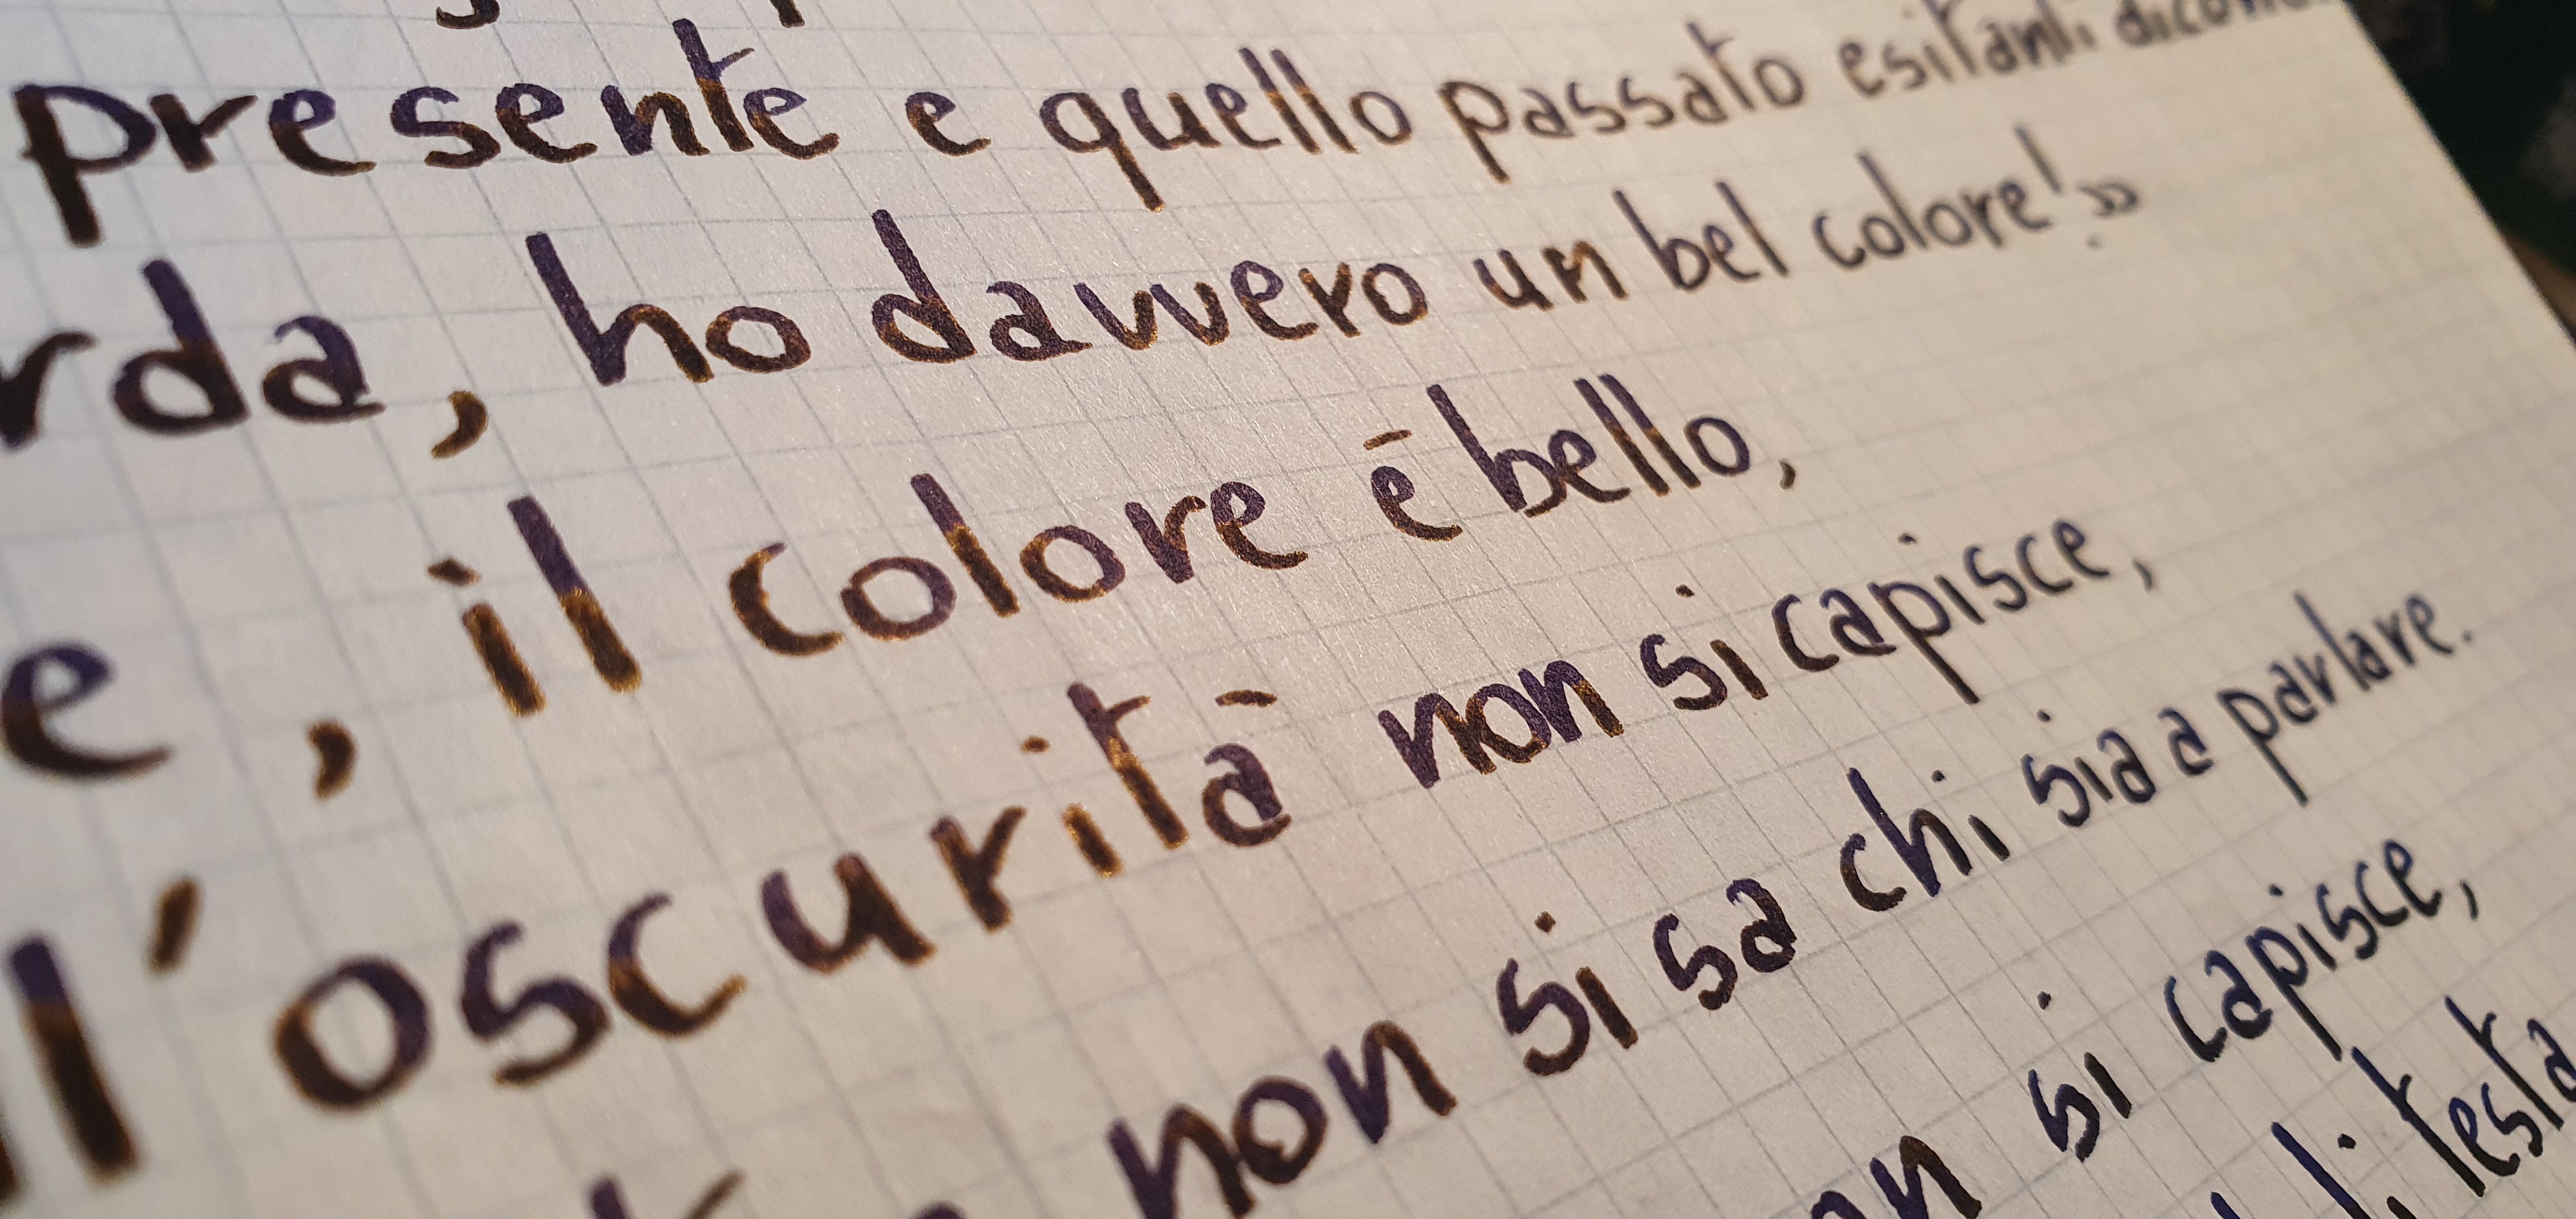 presente e quello passato esitanti
, ho davvero un bel colore!»
, il colore è bello,
l'oscurità non si capisce,
non si sa chi sia a parlare.
si capisce,
di testa